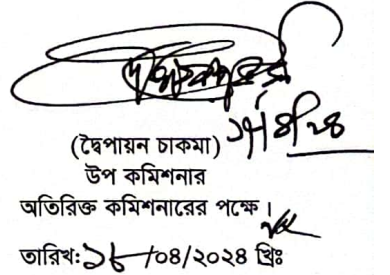 (দ্বৈপায়ন চাকমা)
উপ কমিশনার
অতিরিক্ত কমিশনারের পক্ষে।
তারিখঃ ১৮/০৪/২০২৪ খ্রিঃ